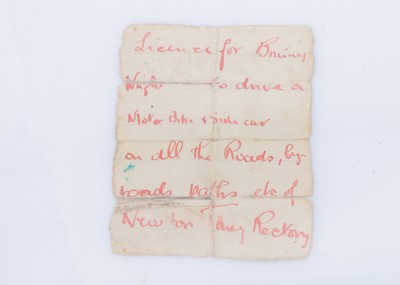 Licence for Bruiny
Wight to drive a
Motor Bike & Side car
on all the Roads, by-
roads paths etc of
Newton Rectory